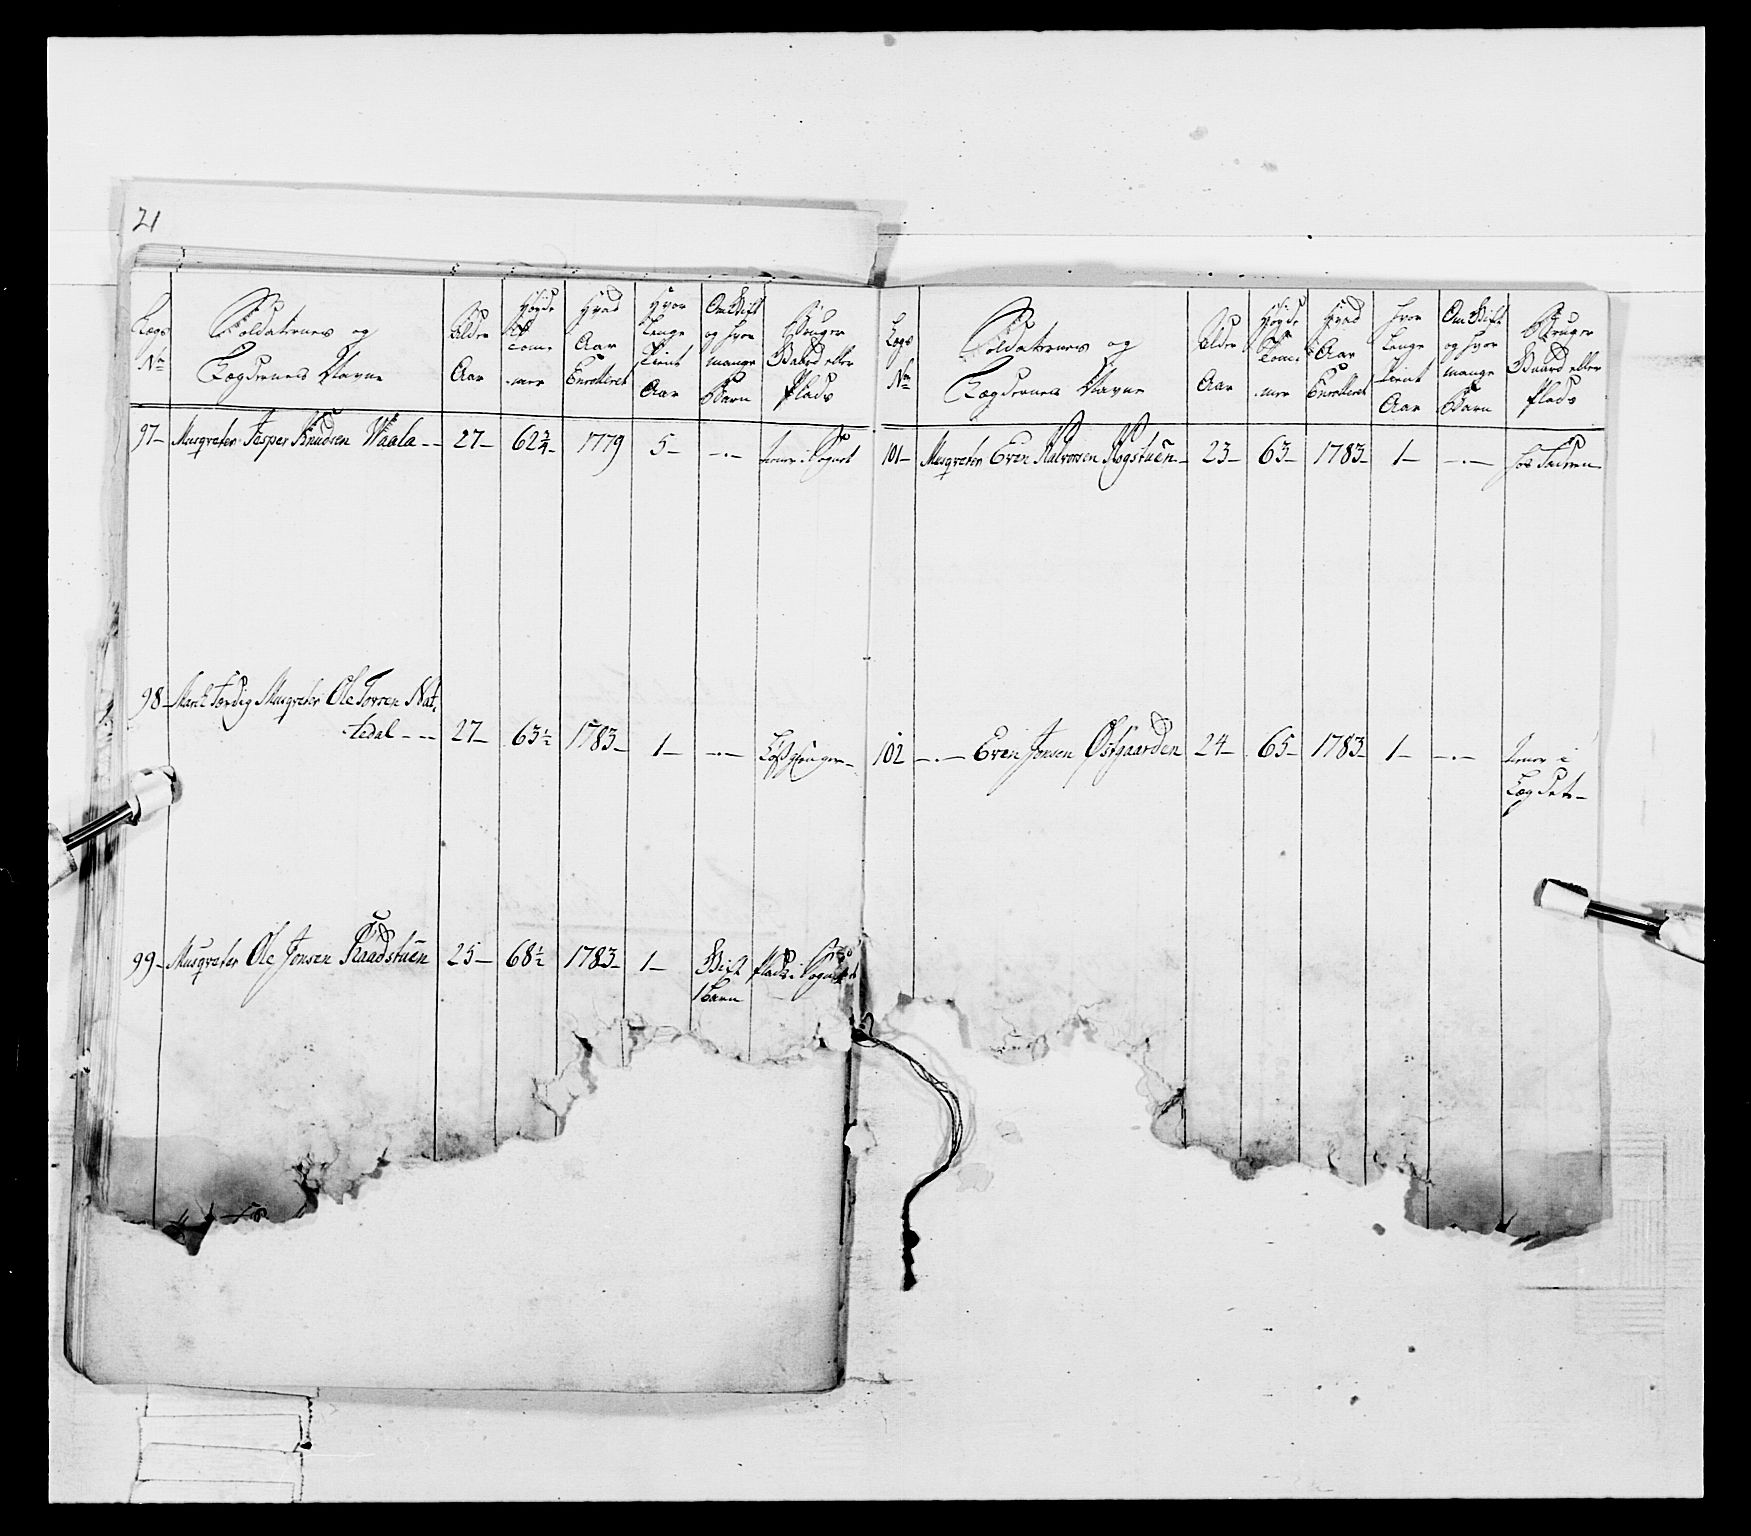 21
Lægs
No
Soldaternes og
Lægdernes Navne
Alder
Aar
Høyde
Tom-
mer
Hvad
Aar
Enrolleret
Hvor
Længe
Tient
Aar
Om Gift
og hvor
mange
Børn
Bruger
Gaard eller
Plads
97- Musqveter Jesper Knudsen Waala -- 27- 62¾- 1779 5- -.-
98- Musqveter Ole Torsen Nat,
tedal --- 27- 63½ 1783- 1- -.-
99- Musqveter Ole Jonsen Raadstuen 25- 68½ 1783- 1- Gift Plads i Sognet
1 Barn
Lægs
No
Soldaternes og
Lægdernes Navne
Alder
Aar
Høyde
Tom-
mer
Hvad
Aar
Enrolleret
Hvor
Længe
Tient
Aar
Om Gift
og hvor
mange
Børn
Bruger
Gaard eller
Plads
101- Musqveter Even Halvorsen Rogstuen- 23- 63- 1783- 1- -.- hos Faderen
102 -.- Even Jonsen Ostgaarden 24- 65- 1783- 1- -.- tiener i
Lægdet-